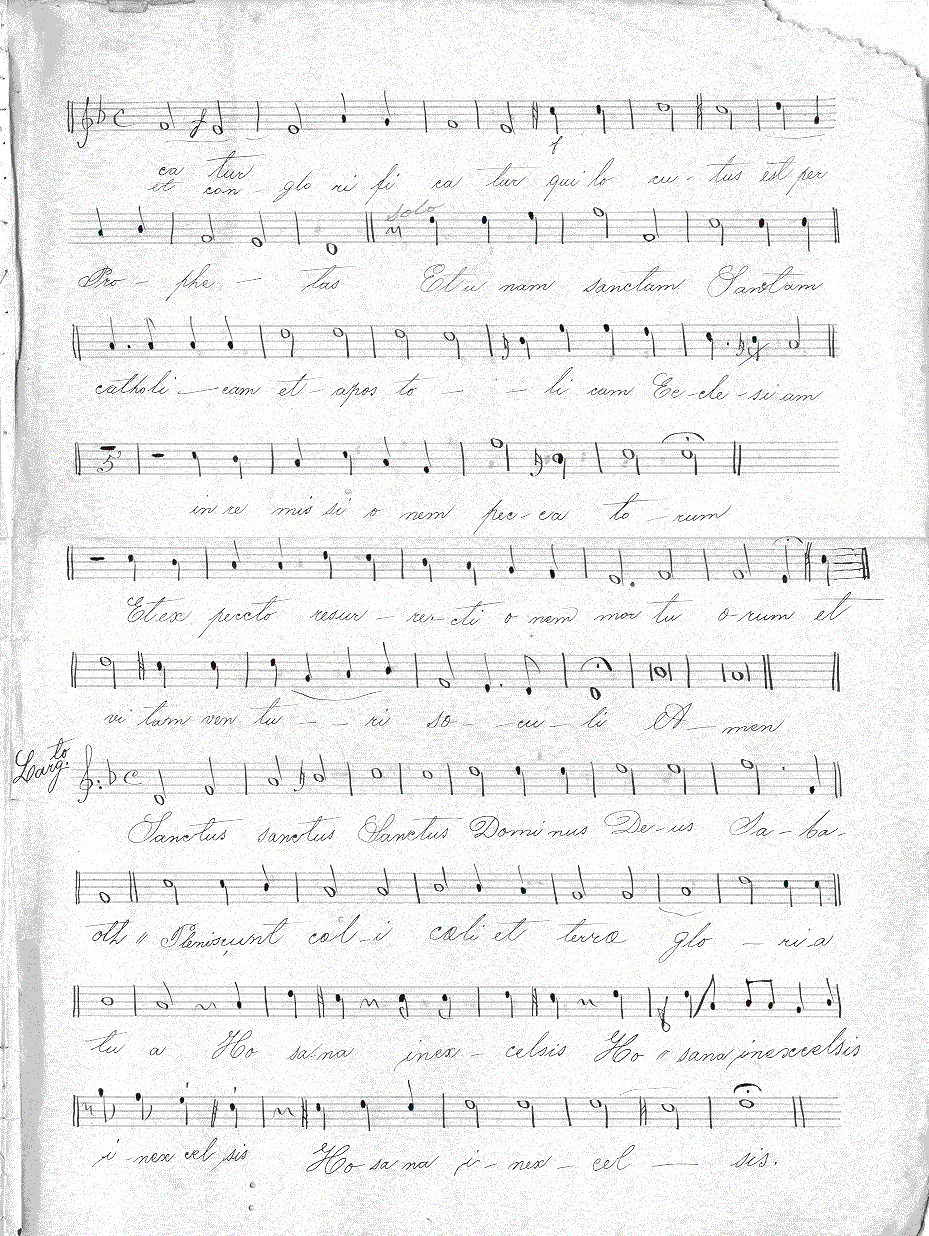 ca tur
et con - glo ri fi ca tur qui lo cu - tus est per
solo
Pro - phe - tas Et u nam sanctam Sanctam
catholi - cam et apos to - - - li cam Ec - cle - si am
5
in re mis si o nem pec - ca to - rum
Et ex peccto resur - rec - cti o nem mor tu o - rum et
vi tam ven tu - - ri so - - cu - li A - men
Largto.
Sanctus sanctus Sanctus Domi nus De - us Sa - ba -
oth " Pleni sunt col - i coli et terra glo - ri a
tu a Ho sa na in ex - celsis Ho " sana in excelsis
i - nex cel sis Ho sa na i - nex - cel - sis.